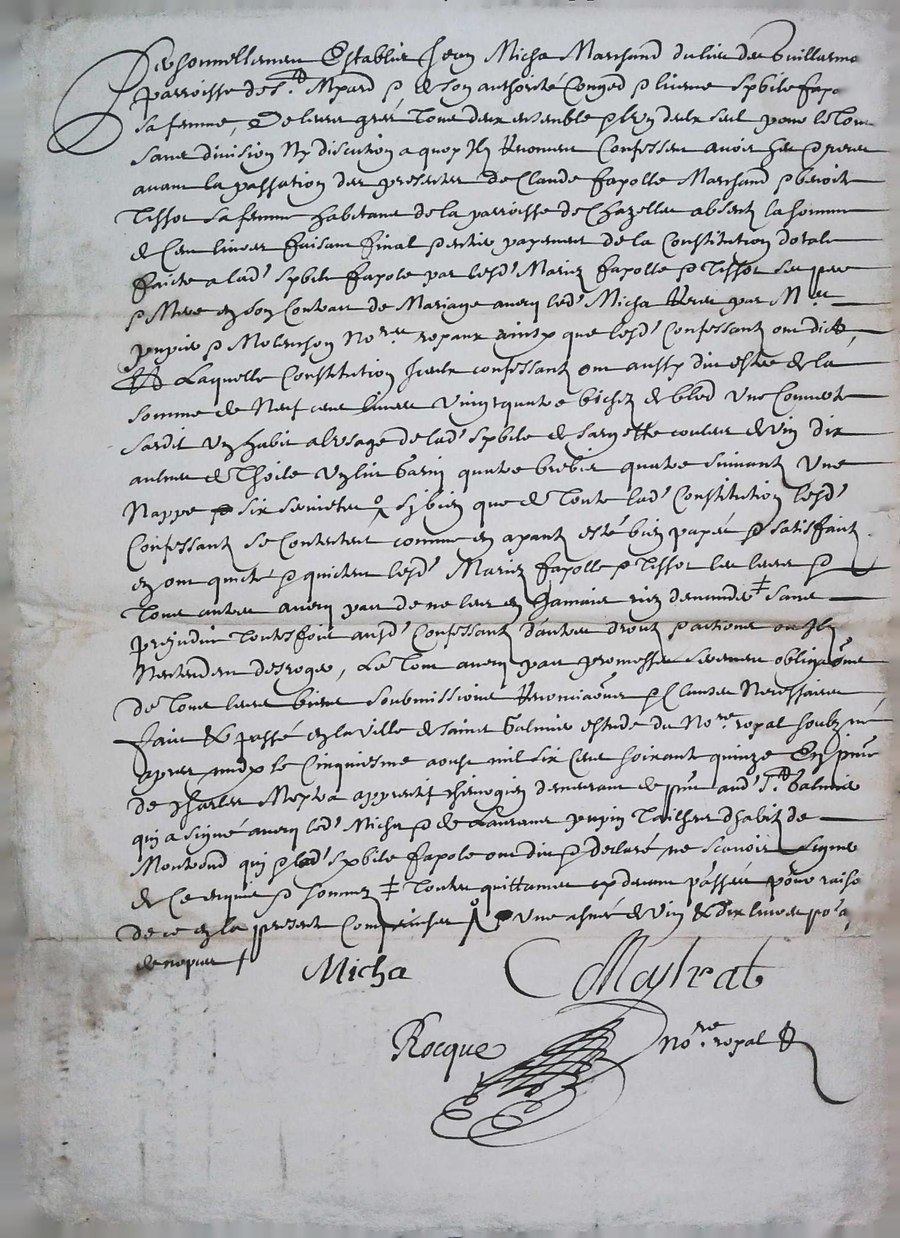 Personnellement Establis Jean Micha Marchand du lieu de Guillermo
parroisse de St Mpard & de son authorité Conged & licence Sybile fapo
sa femme, De leurs grés Tous deux ensemble & lun deulx seul pour le Tout
sans division Ny discution a quoy Ilz Renoncent Confessent avoir heu & receu
avant la passation des presentes de Claude fapolle Marchand & benoite
Tissot sa femme habitans de la parroisse de Chazelles absentz la somme
de Cent livres faisant final & entier payement de la Constitution dotale
faicte a lad. sybile fapole par lesd. Mariez fapolle & Tissot ses pere
& Mere en son Contract de Mariage avecq led. Micha Receu par Mes
Jeupin & Molenchon Nores royaux ainsy que lesd. Confessantz ont dict
Laquelle Constitution Iceulx confessantz ont aussy dict estre de la
somme de Neuf cent livres vingt quatre bichez de bled Une Couverte
Un habit a lusage de lad. sybile de sargette couleur de vin dix
aulnes de Thoile Un lict garny quatre brebis quatre suivantz Une
Nappe & six serviettes sy bien que de Toute lad. Constitution lesd.
Confessantz se Contentent comme en ayant esté bien payés & satisfaictz
en ont quicté & quictent lesd. Mariez fapolle & Tissot les leurs &
Tous autres avecq pact de ne leur en Jamais rien demander ‡ sans
prejudice Toutesfois ausd. Confessantz d'autres droictz & actions ou Ilz
Nentendent desroger, Le Tout avecq par promesses serment obligaõns
de Tous leurs biens soubmissions Renonciaõns & Clauses Necessaires
faict & passé en la ville de saint Galmier estude du Nore royal soubzné
apres midy le Cinquiesme aoust mil six Cent soixante quinze En pñce
de Charles apprentif chirurgien demeurant de pñt aud. St Galmier
qui a signé avecq led. Micha & de Laurent Jeupin Tailheur d'habitz de
Montrond qui & lad. sybile fapole ont dict & declaré ne scavoir signer
de Ce enquis & sommez ‡ Toutes quittances cy devant passées pour raison
de ce en la presente Comprinses Une asnée de vin & dix livres po. a
de nopces
Micha
Maystrat
Rocque
Nore royal